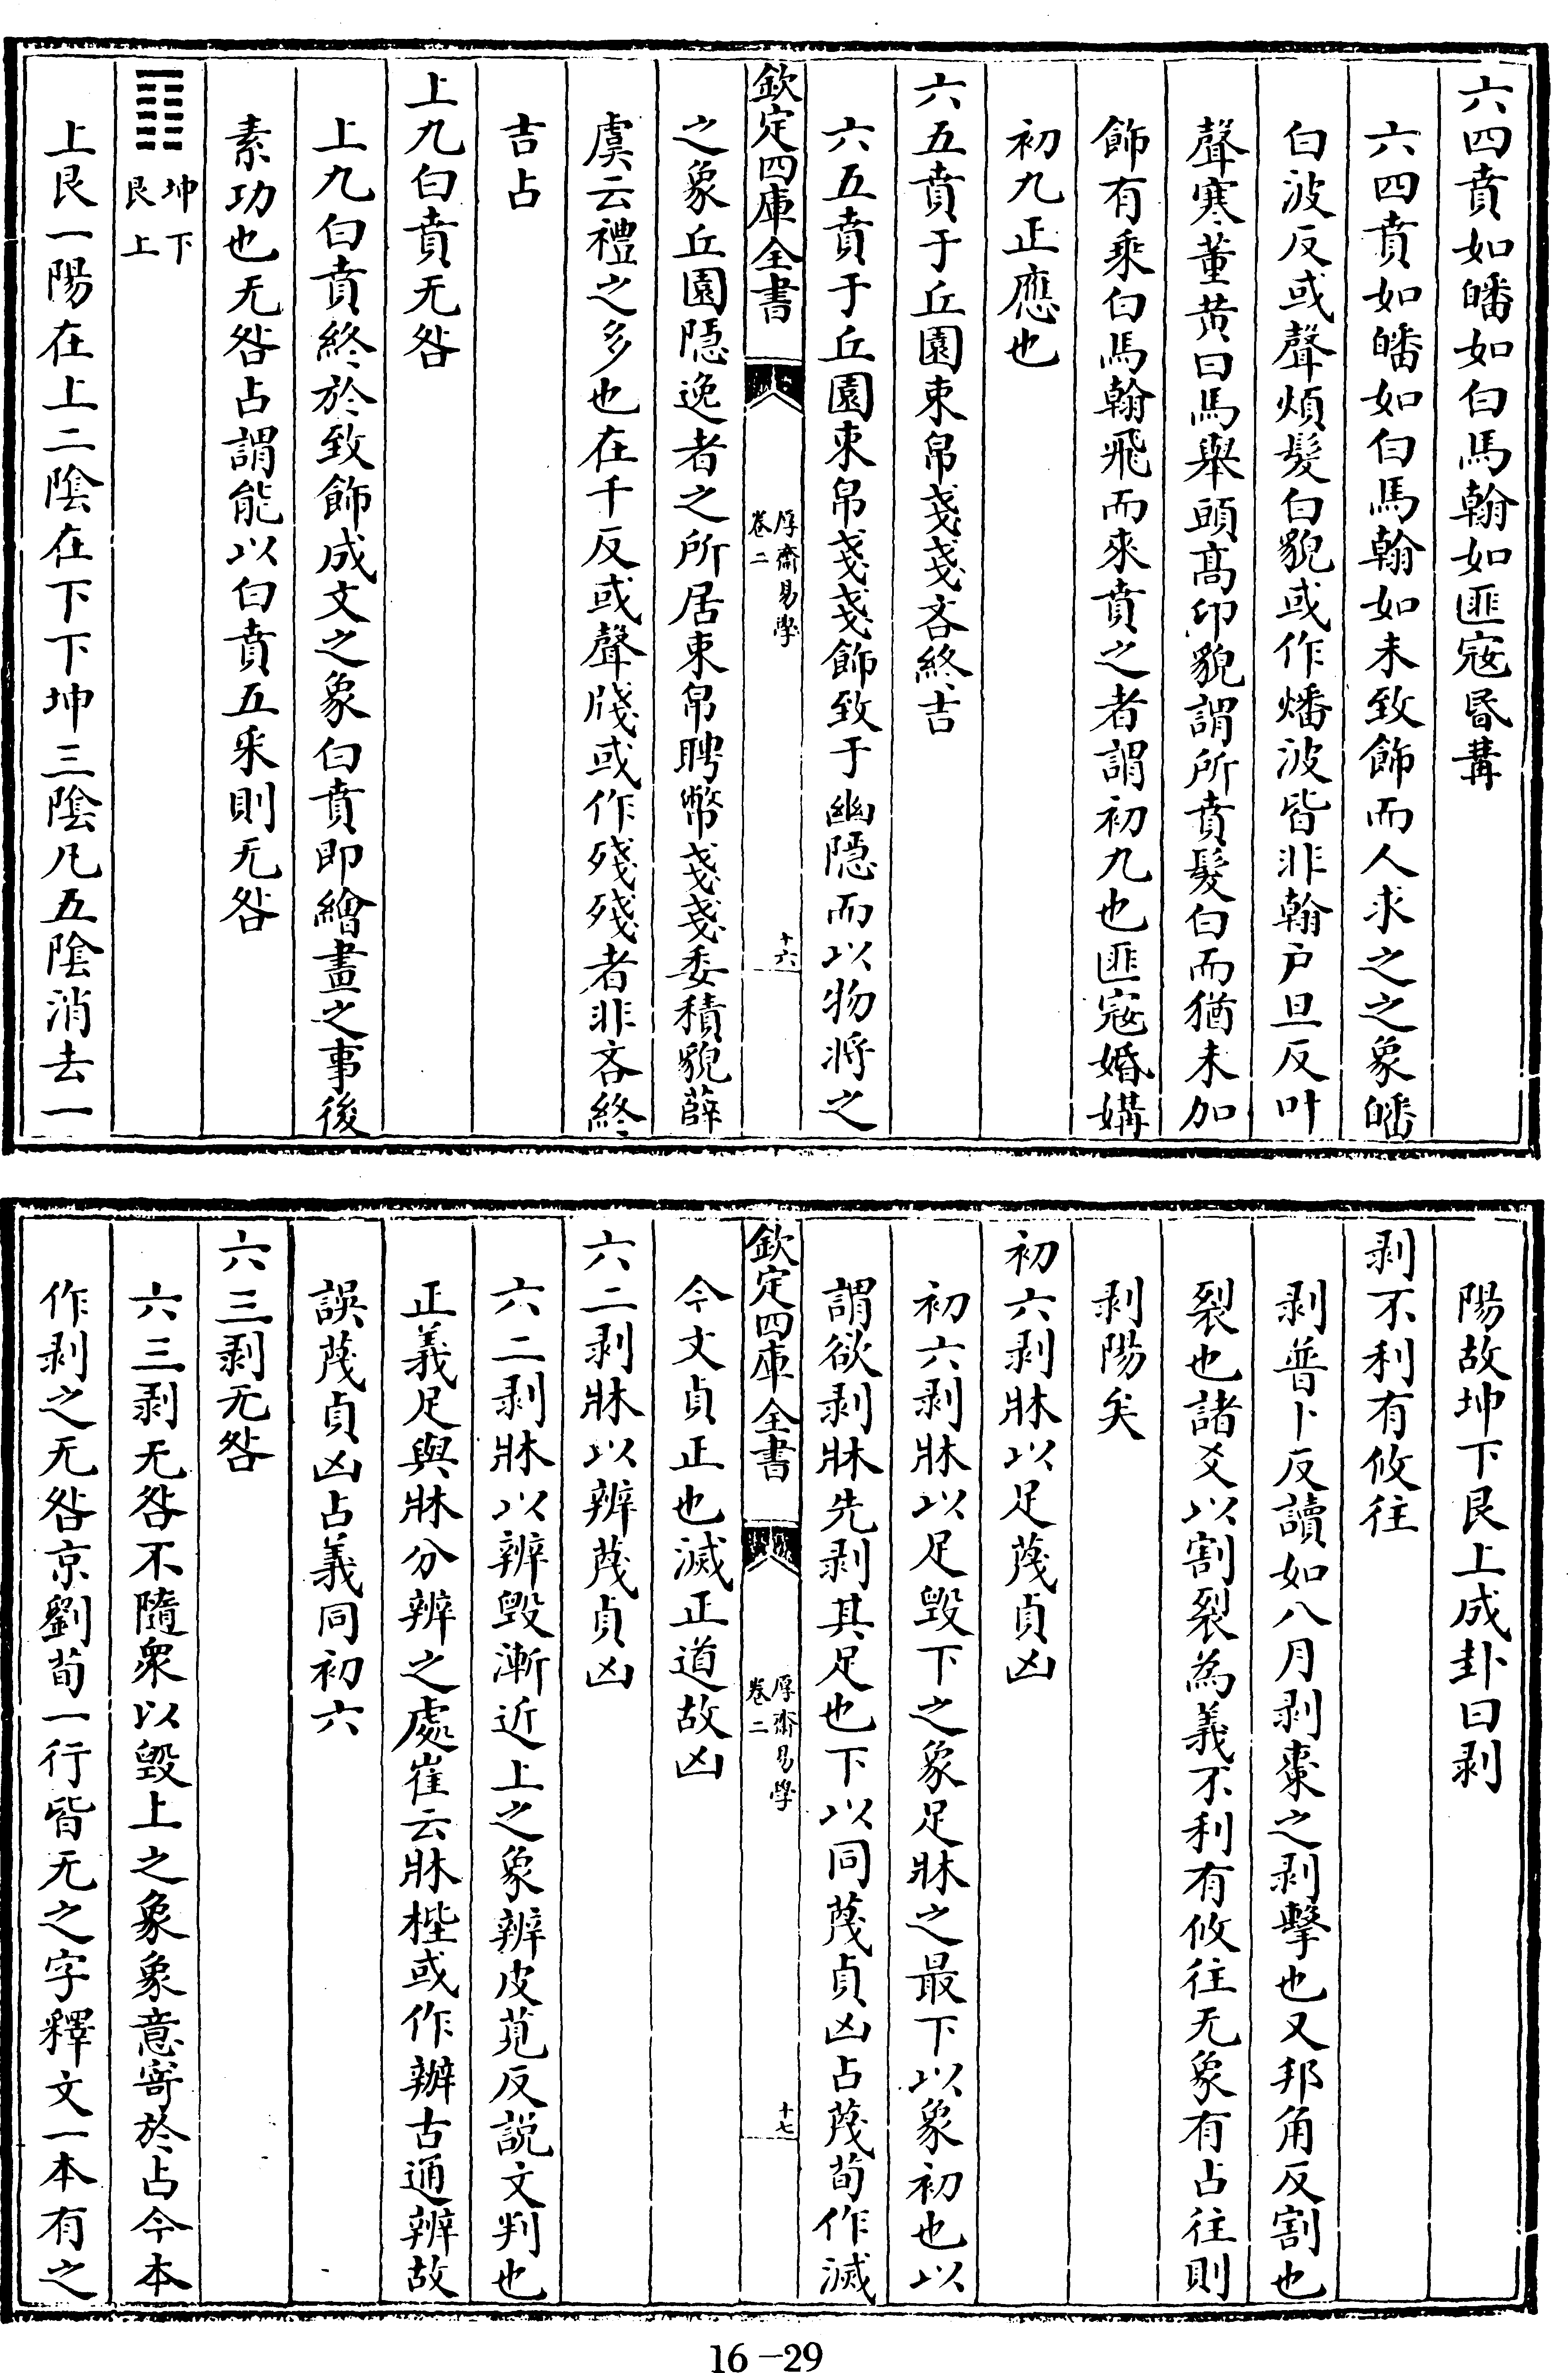 六四賁如皤如白馬翰如匪寇昏冓
六四賁如皤如白馬翰如未致飾而人求之之象皤
白波反或聲煩髮白貌或作燔波皆非翰戶旦反叶
聲寒董黄曰馬舉頭髙卬貌謂所賁髮白而猶未加
飾有乘白馬翰飛而來賁之者謂初九也匪寇婚媾
初九正應也
六五賁于丘園束帛戔戔吝終吉
六五賁于丘園束帛戔戔飾致于幽隠而以物將之
欽定四庫全書
厚齋易學
卷二
十六
之象丘園隠逸者之所居束帛聘幣戔戔委積貌薛
虞云禮之多也在千反或聲牋或作殘殘者非吝終
吉占
上九白賁无咎
上九白賁終於致飾成文之象白賁即繪畫之事後
素功也无咎占謂能以白賁五采則无咎
䷖ 坤下
艮上
上艮一陽在上二陰在下下坤三陰凡五陰消去一
陽故坤下艮上成卦曰剥
剥不利有攸往
剥普卜反讀如八月剥棗之剥擊也又邦角反割也
裂也諸爻以割裂為義不利有攸往无象有占往則
剥陽矣
初六剥牀以足蔑貞凶
初六剥牀以足毁下之象足牀之最下以象初也以
謂欲剥牀先剥其足也下以同蔑貞凶占蔑荀作滅
欽定四庫全書
厚齋易學
卷二
十七
今文貞正也滅正道故凶
六二剥牀以辨蔑貞凶
六二剥牀以辨毁漸近上之象辨皮莧反説文判也
正義足與牀分辨之處崔云牀梐或作辦古通辨故
誤蔑貞凶占義同初六
六三剥无咎
六三剥无咎不隨衆以毁上之象象意寄於占今本
作剥之无咎京劉荀一行皆无之字釋文一本有之
16-29